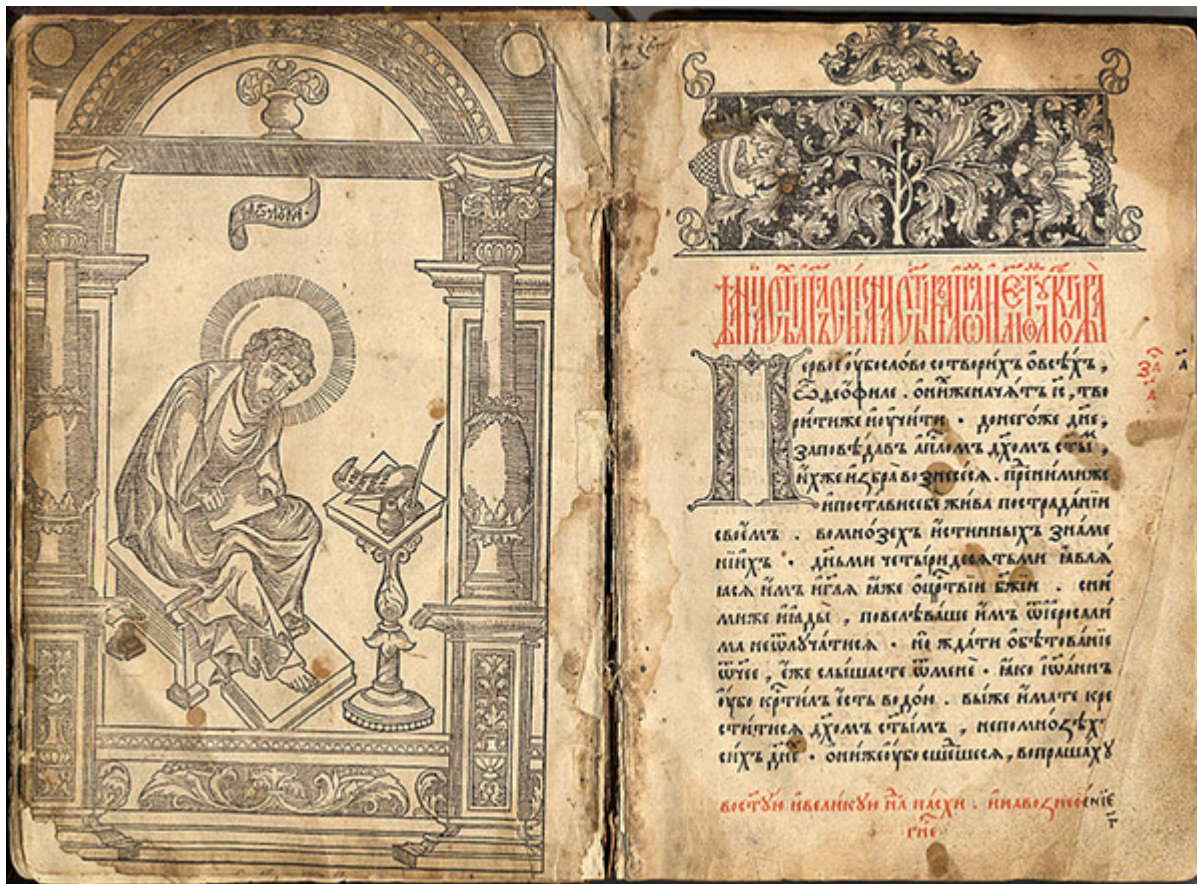 Первое ᲂу҆́бо сло́во сотвори́хъ ѡ҆всѣ́хъ ,
ѽ деѻ҆́филе . ѻ҆ни́хже нача́тъ і҆с҃ , тво
ри́тиже и҆ ᲂу҆чи́ти . донего́же дн҃е ,
заповѣ́давъ а҆пⷭ҇ломъ дх҃омъ ст҃ыⷨ ,
и҆́хже и҆збра̀ вознесе́сѧ . преⷣ ни́миже
и҆поста́ви себѐ жи́ва пострада́нїи
свое́мъ . вомно́зехъ и҆́стинныхъ зна́ме
нїихъ . дн҃ьми четы́ридесѧтьми ꙗ҆влѧ́ѧ
сѧ и҆̀мъ и҆ гл҃ѧ ꙗ҆̀же ѻ҆ црⷭ҇твїи бж҃їи . сни́
миже и҆ ꙗ҆ды̀ , повелѣва́ше и҆̀мъ ѿ і҆ерⷭ҇али́
ма неѿлꙋча́тисѧ . но жда́ти ѻ҆бѣтова́нїе
ѻ҆́ч҃ее , е҆́же слы́шасте ѿменѐ . ꙗ҆́ко і҆ѡ҆а́ннъ
ᲂу҆́бо крⷭ҇ти́лъ є҆́сть водо́ю . вы́же и҆́мате кре
сти́тисѧ дх҃омъ ст҃ы́мъ , непомно́зѣхъ
си́хъ дн҃е . ѻ҆ни́же ᲂу҆́бо сше́дшесѧ , вопраша́хꙋ
вост҃ꙋ́ю и҆ вели́кꙋю нлⷣю па́схи . и҆ на вознесе́нїе
гн҃е